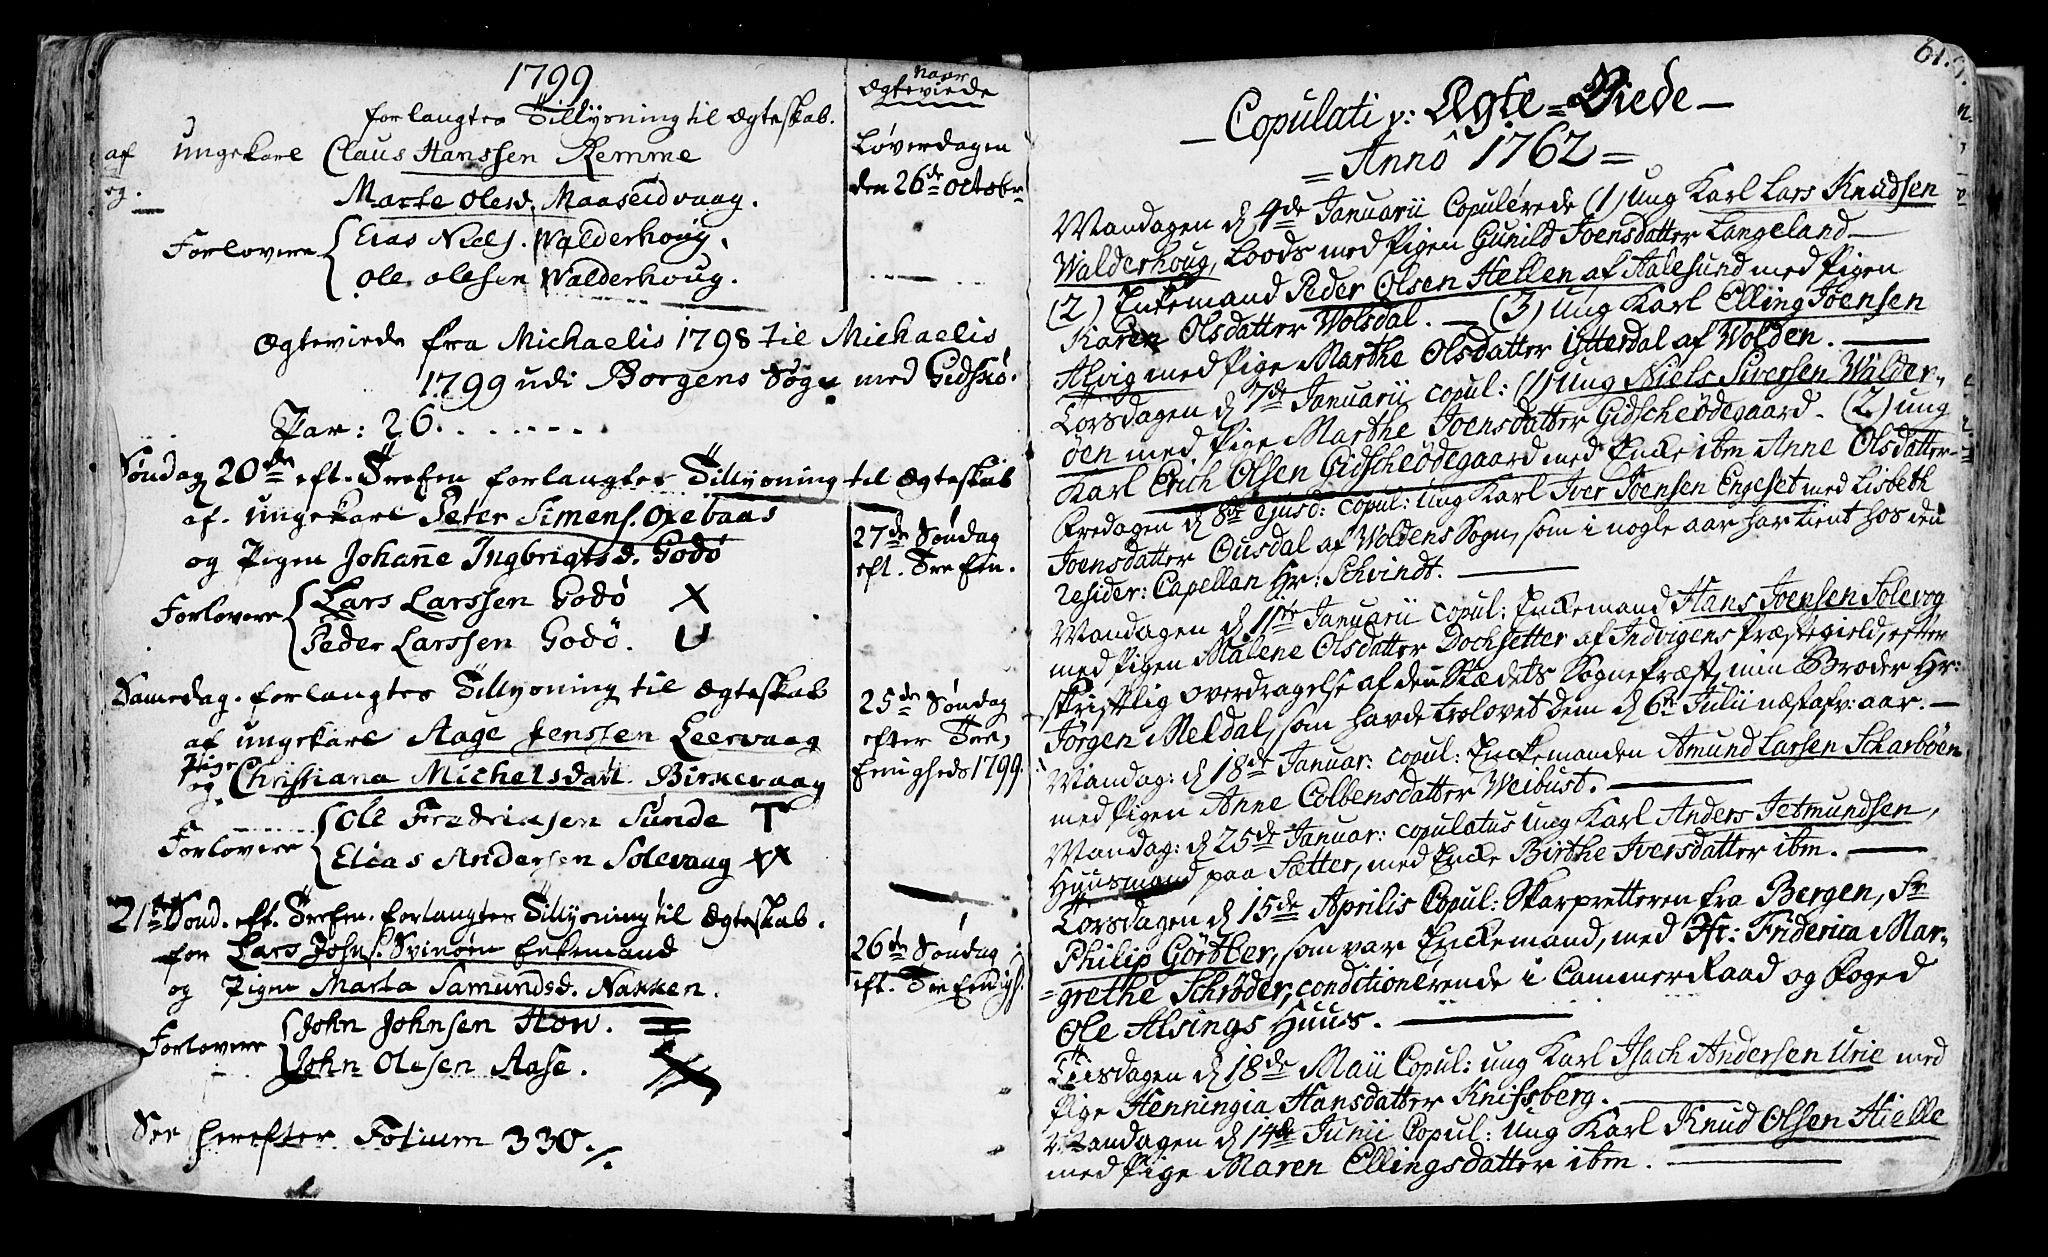 1799
forlanges Tillysning til Ægteskab.
af Ungekarl Claus Hanssen Remme
og. Marte Olesd. Maaseidvaag.
Forlovere Elias Niels. Walderhoug.
Ole Olesen Walderhoug.
naar
Ægteviede
Løverdagen
den 26de October
Ægteviede fra Michaelis 1798 til Michaelis
1799 udi Borgens Sogn med Gidskø.
Par: 26.
Søndag 20de eft. Trefen forlanges Tillysning til Ægteskab
af. Ungekarl Peter Simens. Oxebaas
og Pigen Johanne Ingbrigtsd. Godø
Forlovere Lars Larssen Godø X
Peder Larssen Godø. U
27de Søndag
eft. Trefen.
Samedag. forlanges Tillysning til Ægteskab
af ungekarl Aage Jenssen Leervaag
Pigen
og Christiana Michelsdatt. Birkevaag
Forlovere Ole Fredriksen Sunde T
Elias Andersen Solevaag XX
25de Søndag
efter Tre,
Enigheds 1799.
21de Sønd. eft. Trefen. forlanges Tillysning til Ægteskab.
for Lars Johns. Svinøen Enkemand
og Pigen Marta Samundsd. Nakken.
Forlovere John Johnsen How.
John Olesen Aase.
26de Søndag
eft. Tre Enigh.
See herefter Folium 330./.
61.
Copulati v: Ægte=Viede
Anno 1762
Mandagen d 4de Januarii Copulerede (1) ung Karl Lars Knudsen
Walderhoug, Loods med Pigen Gunild Joensdatter Langeland
(2) Enkemand Peder Olsen Hellen af Aalesund med Pigen
Karen Olsdatter Wolsdal. (3) ung Karl Elling Joensen
Alvig med Pige Marthe Olsdatter Ytterdal af Wolden.
Torsdagen d 7de Januarii copul: (1) Ung Niels Siversen Walder-
øen med Pige Marthe Joensdatter Gidscheødegaard. (2) ung
Karl Erich Olsen Gidscheødegaard med Encke ibm Anne Olsdatter
Fredagen d 8de ejusd: copul: Ung Karl Iver Joensen Engeset med Lisbeth
Joensdatter Ousdal af Woldens Sogn, som i nogle aar har tient hos den
resider: Capellan Hr: Schvindt.
Mandagen d 11te Januarii copul: Enckemand Hans Joensen Solevog
med Pigen Malene Olsdatter Dochsetter af Indvigens Præstegield, efter
skriftlig overdragelse af den Stædets Sognepræst, min Broder Hr:
Jørgen Meldal, som havde trolovet dem d 6te Julii næstafv: aar.
Mandag: d 18de Januar: copul: Enckemanden Amund Larsen Scharbøen
med Pigen Anne Colbensdatter Weibust.
Mandag: d 25de Januar: copulatus ung Karl Anders Jetmundsen,
Huusmand paa Sætter, med Encke Birthe Iversdatter ibm.
Torsdagen d 15de Aprilis Copul: Skarpretteren fra Bergen, Sr
Philip Görtber, som var Enckemand, med Jfr: Friderica Mar-
grethe Schrøder, conditionerende i CammerRaad og Foged
Ole Alsings Huus.
Tiirsdagen d 18de Maii Copul: ung Karl Isach Andersen Urie med
Pige Henningia Hansdatter Knifsberg.
Mandagen d 14de Junii Copul: Ung Karl Knud Olsen Hielle
med Pige Maren Ellingsdatter ibm.